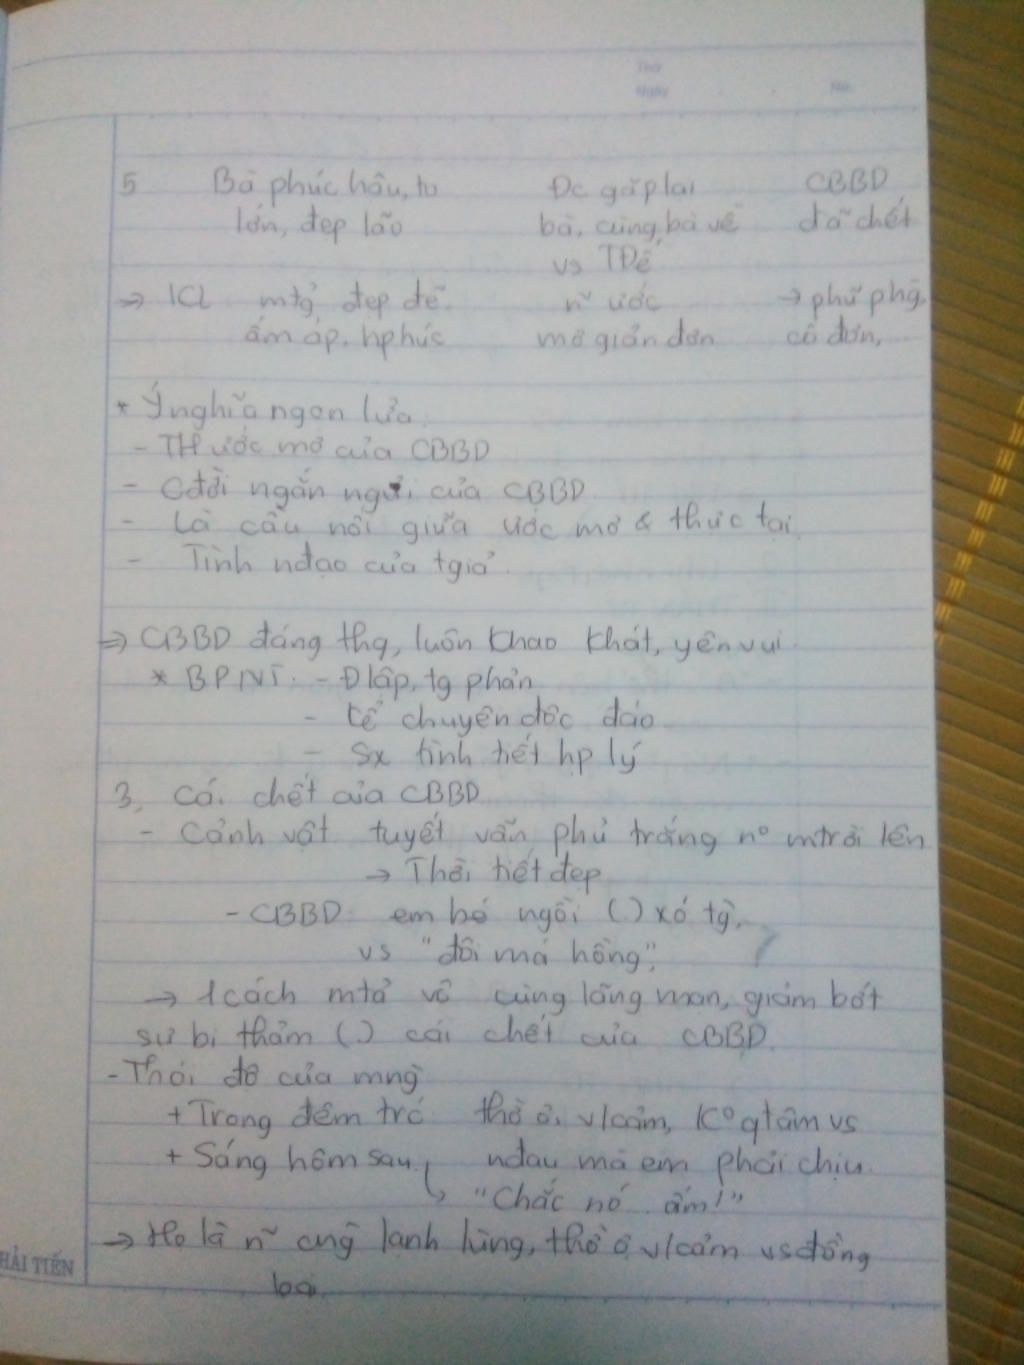 Thứ
Ngày No.
5 Bà phúc hậu, to Đc gặp lại CBBD
lớn, đẹp lão bà, cùng bà về đã chết
vs TĐế
=> KL mtg đẹp đẽ. n~ ước -> phũ phg,
ấm áp, hphúc mơ giản đơn cô đơn,
* Ý nghĩa ngọn lửa
- TH ước mơ của CBBD
- Cđời ngắn ngủi của CBBD
- Là cầu nối giữa ước mơ & thực tại
- Tình nđạo của tgiả
=> CBBD đáng thg, luôn khao khát, yên vui
* BPNT. - Đlập, tg phản
- kể chuyện độc đáo
- Sx tình tiết hp lý
3, Cái chết của CBBD
- Cảnh vật tuyết vẫn phủ trắng n° mtrời lên
-> Thời tiết đẹp
- CBBD em bé ngồi (.) xó tg,
vs "đôi má hồng",
-> 1 cách mtả vô cùng lãng mạn, giảm bớt
sự bi thảm (.) cái chết của CBBD
- Thái độ của mng
+ Trong đêm trc thờ ơ, v/cảm, K° qtâm vs
+ Sáng hôm sau nđau mà em phải chịu.
"Chắc nó ấm!"
-> Họ là n~ cng lạnh lùng, thờ ơ, v/cảm vs đồng
loại
HẢI TIẾN